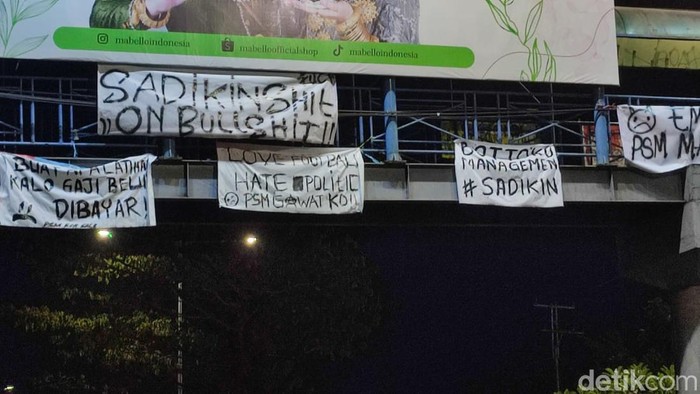 mabelloindonesia mabelloofficialshop mabelloindonesia
SADIKINSHIT
"ON BULLSHIT!!
BUAT APA LATIHAN
KALO GAJI BELUM
DIBAYAR!
LOVE FOOTBALL
HATE POLITIC
PSM GAWAT KDI!
BOTTOKU
MANAGEMEN
#SADIKIN
PSM
detikcom